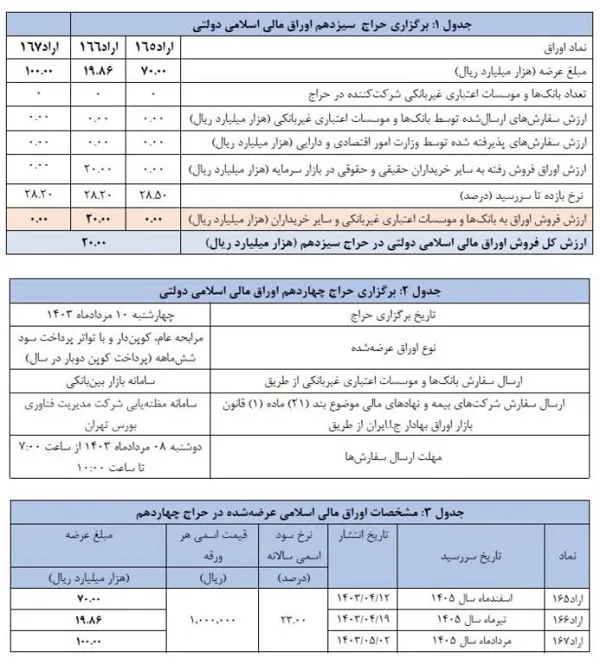 جدول ۱: برگزاری حراج سیزدهم اوراق مالی اسلامی دولتی
نماد اوراق اراد۱۶۵ اراد۱۶۶ اراد۱۶۷
مبلغ عرضه (هزار میلیارد ریال) ۷۰.۰۰ ۱۹.۸۶ ۱۰۰.۰۰
تعداد بانک‌ها و موسسات اعتباری غیربانکی شرکت‌کننده در حراج ۰ ۰ ۰
ارزش سفارش‌های ارسال‌شده توسط بانک‌ها و موسسات اعتباری غیربانکی (هزار میلیارد ریال) ۰.۰۰ ۰.۰۰ ۰.۰۰
ارزش سفارش‌های پذیرفته شده توسط وزارت امور اقتصادی و دارایی (هزار میلیارد ریال) ۰.۰۰ ۰.۰۰ ۰.۰۰
ارزش اوراق فروش رفته به سایر خریداران حقیقی و حقوقی در بازار سرمایه (هزار میلیارد ریال) ۰.۰۰ ۲۰.۰۰ ۰.۰۰
نرخ بازده تا سررسید (درصد) ۲۸.۵۰ ۲۸.۲۰ ۲۸.۲۰
ارزش فروش اوراق به بانک‌ها و موسسات اعتباری غیربانکی و سایر خریداران (هزار میلیارد ریال) ۰.۰۰ ۲۰.۰۰ ۰.۰۰
ارزش کل فروش اوراق مالی اسلامی دولتی در حراج سیزدهم (هزار میلیارد ریال) ۲۰.۰۰
جدول ۲: برگزاری حراج چهاردهم اوراق مالی اسلامی دولتی
تاریخ برگزاری حراج چهارشنبه ۱۰ مردادماه ۱۴۰۳
نوع اوراق عرضه‌شده مرابحه عام، کوپن‌دار و با تواتر پرداخت سود
شش‌ماهه (پرداخت کوپن دوبار در سال)
ارسال سفارش بانک‌ها و موسسات اعتباری غیربانکی از طریق سامانه بازار بین‌بانکی
ارسال سفارش شرکت‌های بیمه و نهادهای مالی موضوع بند (۲۱) ماده (۱) قانون سامانه مظنه‌یابی شرکت مدیریت فناوری
بازار اوراق بهادار ج.ا.ایران از طریق بورس تهران
مهلت ارسال سفارش‌ها دوشنبه ۰۸ مردادماه ۱۴۰۳ از ساعت ۷:۰۰
تا ساعت ۱۰:۰۰
جدول ۳: مشخصات اوراق مالی اسلامی عرضه‌شده در حراج چهاردهم
نماد تاریخ سررسید تاریخ انتشار نرخ سود قیمت اسمی هر مبلغ عرضه
اسمی سالانه ورقه
(درصد) (ریال) (هزار میلیارد ریال)
اراد۱۶۵ اسفندماه سال ۱۴۰۵ ۱۴۰۳/۰۴/۱۲ ۷۰.۰۰
اراد۱۶۶ تیرماه سال ۱۴۰۵ ۱۴۰۳/۰۴/۱۹ ۲۳.۰۰ ۱،۰۰۰،۰۰۰ ۱۹.۸۶
اراد۱۶۷ مردادماه سال ۱۴۰۵ ۱۴۰۳/۰۵/۰۲ ۱۰۰.۰۰